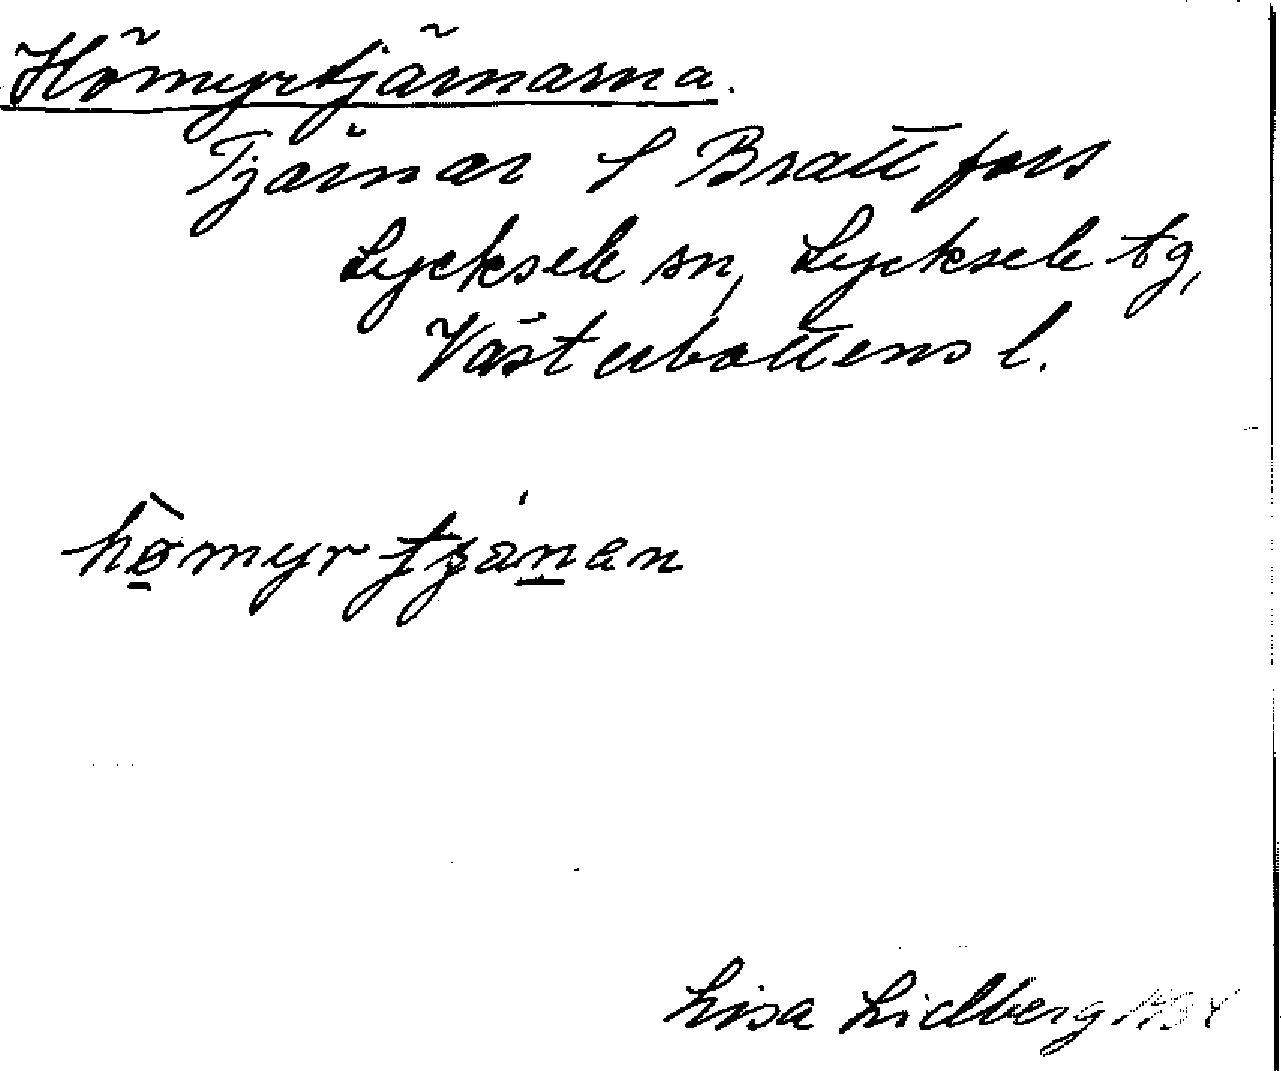 Hömyrtjärnarna.
Tjärnar S Brattfors
Lycksele sn, Lycksele tg,
Västerbottens l.
Lisa Lidberg